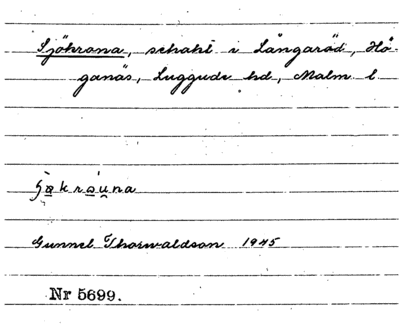 Sjökrona, schakt i Långaröd, Hö-
ganäs, Luggude hd, Malm l
Gunnel Thorwaldson 1945
Nr 5699.